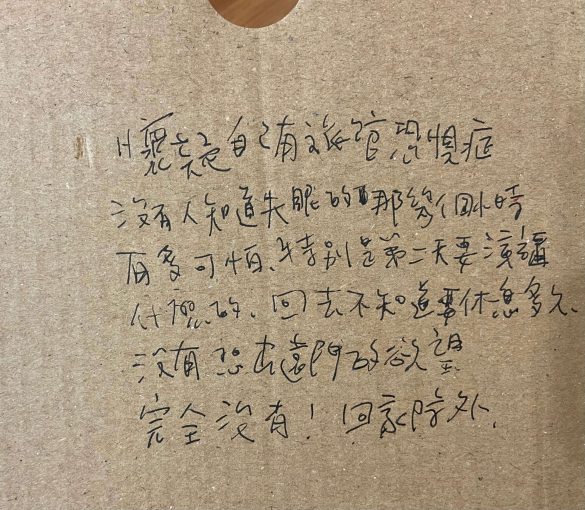 懷疑自己有旅館恐懼症
沒有人知道失眠的那幾個小時
有多可怕、特別是第二天要演講
什麼的、回去不知道要休息多久、
沒有想出遠門的欲望
完全沒有！回家除外、